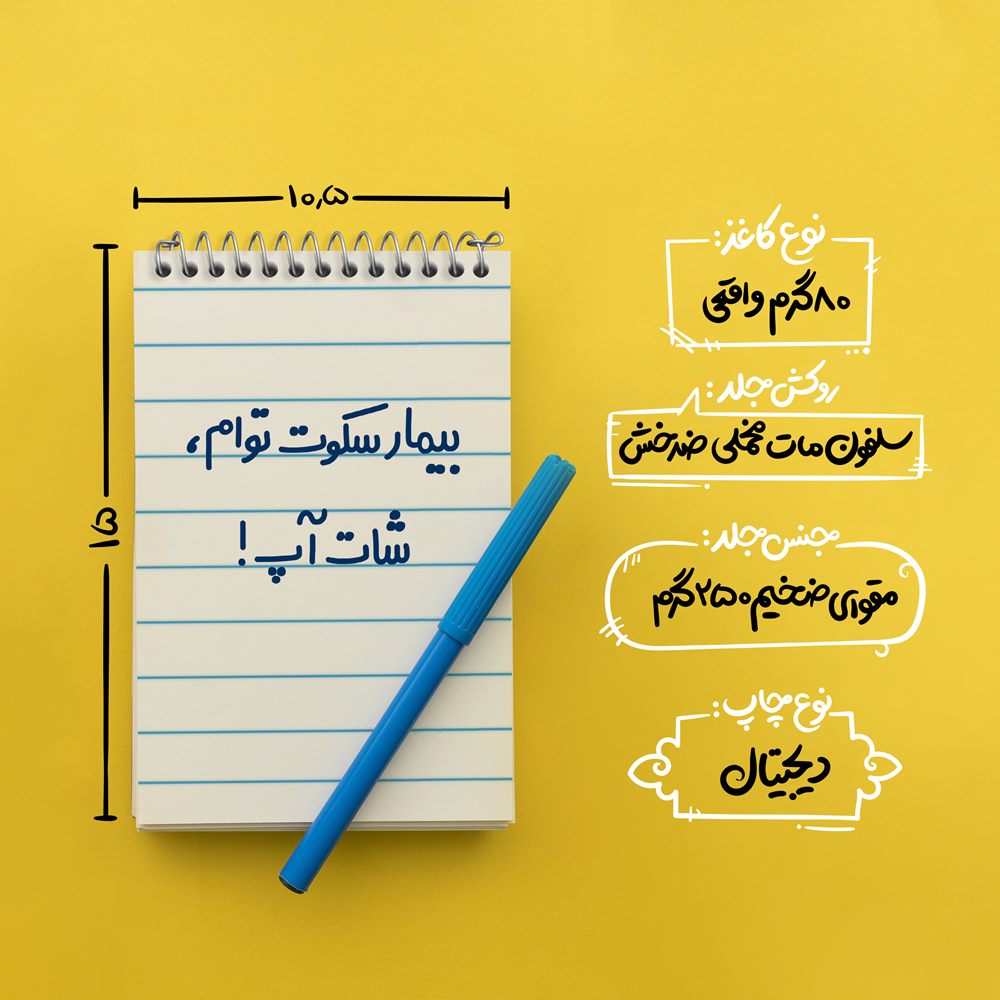 ۱۰٫۵
۱۵
بیمار سکوت توام،
شات آپ!
نوع کاغذ:
۸۰ گرم واقعی
روکش جلد:
سلفون مات مخملی ضدخش
جنس جلد:
مقوای ضخیم ۲۵۰ گرم
نوع چاپ:
دیجیتال